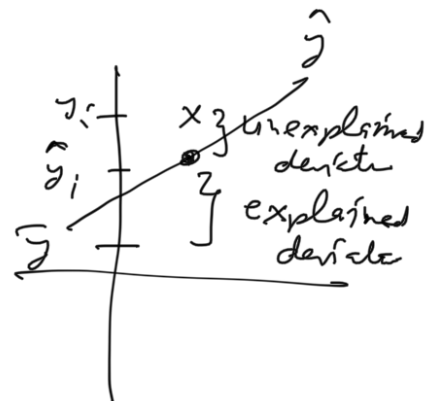 ŷ
yᵢ
x } unexplained
deviate
ŷᵢ
} explained
deviate
ȳ